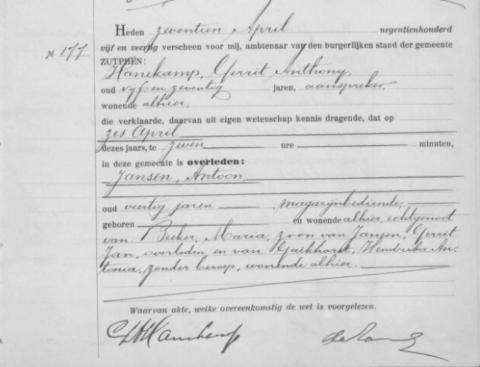 Heden zeventien April negentienhonderd
№ 177 vijf en veertig verscheen voor mij, ambtenaar van den burgerlijken stand der gemeente
ZUTPHEN:
Hanekamp, Gerrit Anthony,
oud vijf en zeventig jaren, aanspreker,
wonende alhier,
die verklaarde, daarvan uit eigen wetenschap kennis dragende, dat op
zes April
dezes jaars, te zeven ure minuten,
in deze gemeente is overleden:
Jansen, Antoon,
oud veertig jaren, magazijnbediende,
geboren en wonende alhier, echtgenoot
van Becker, Maria, zoon van Jansen, Gerrit
Jan, overleden en van Hendrika An-
tonia, zonder beroep, wonende alhier.
Waarvan akte, welke overeenkomstig de wet is voorgelezen.
GAHanekamp